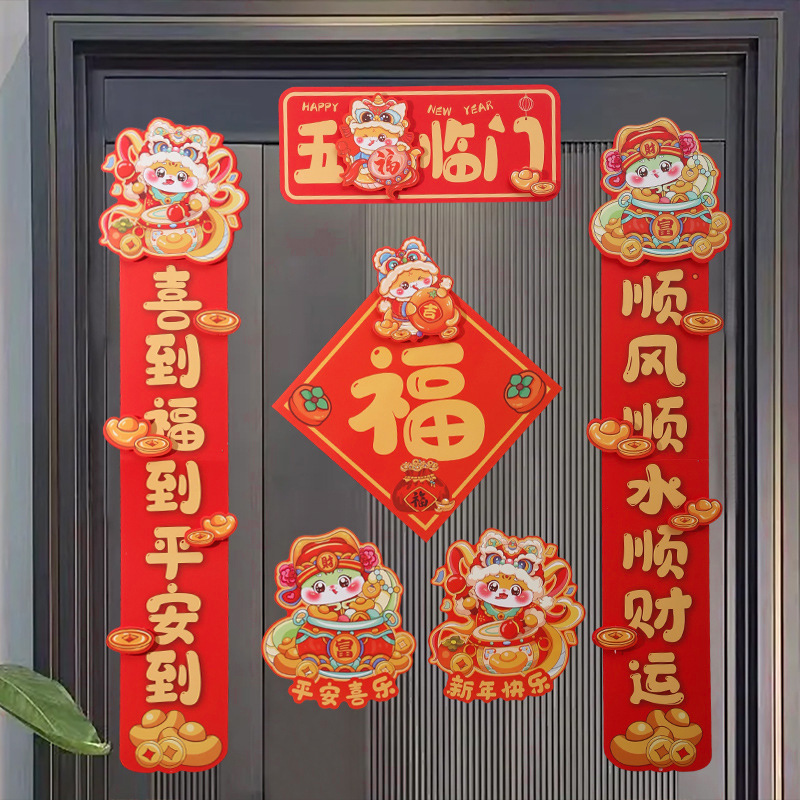 HAPPY NEW YEAR
五福临门
喜到福到平安到
顺风顺水顺财运
財
富
吉
福
福
財
富
平安喜乐
新年快乐